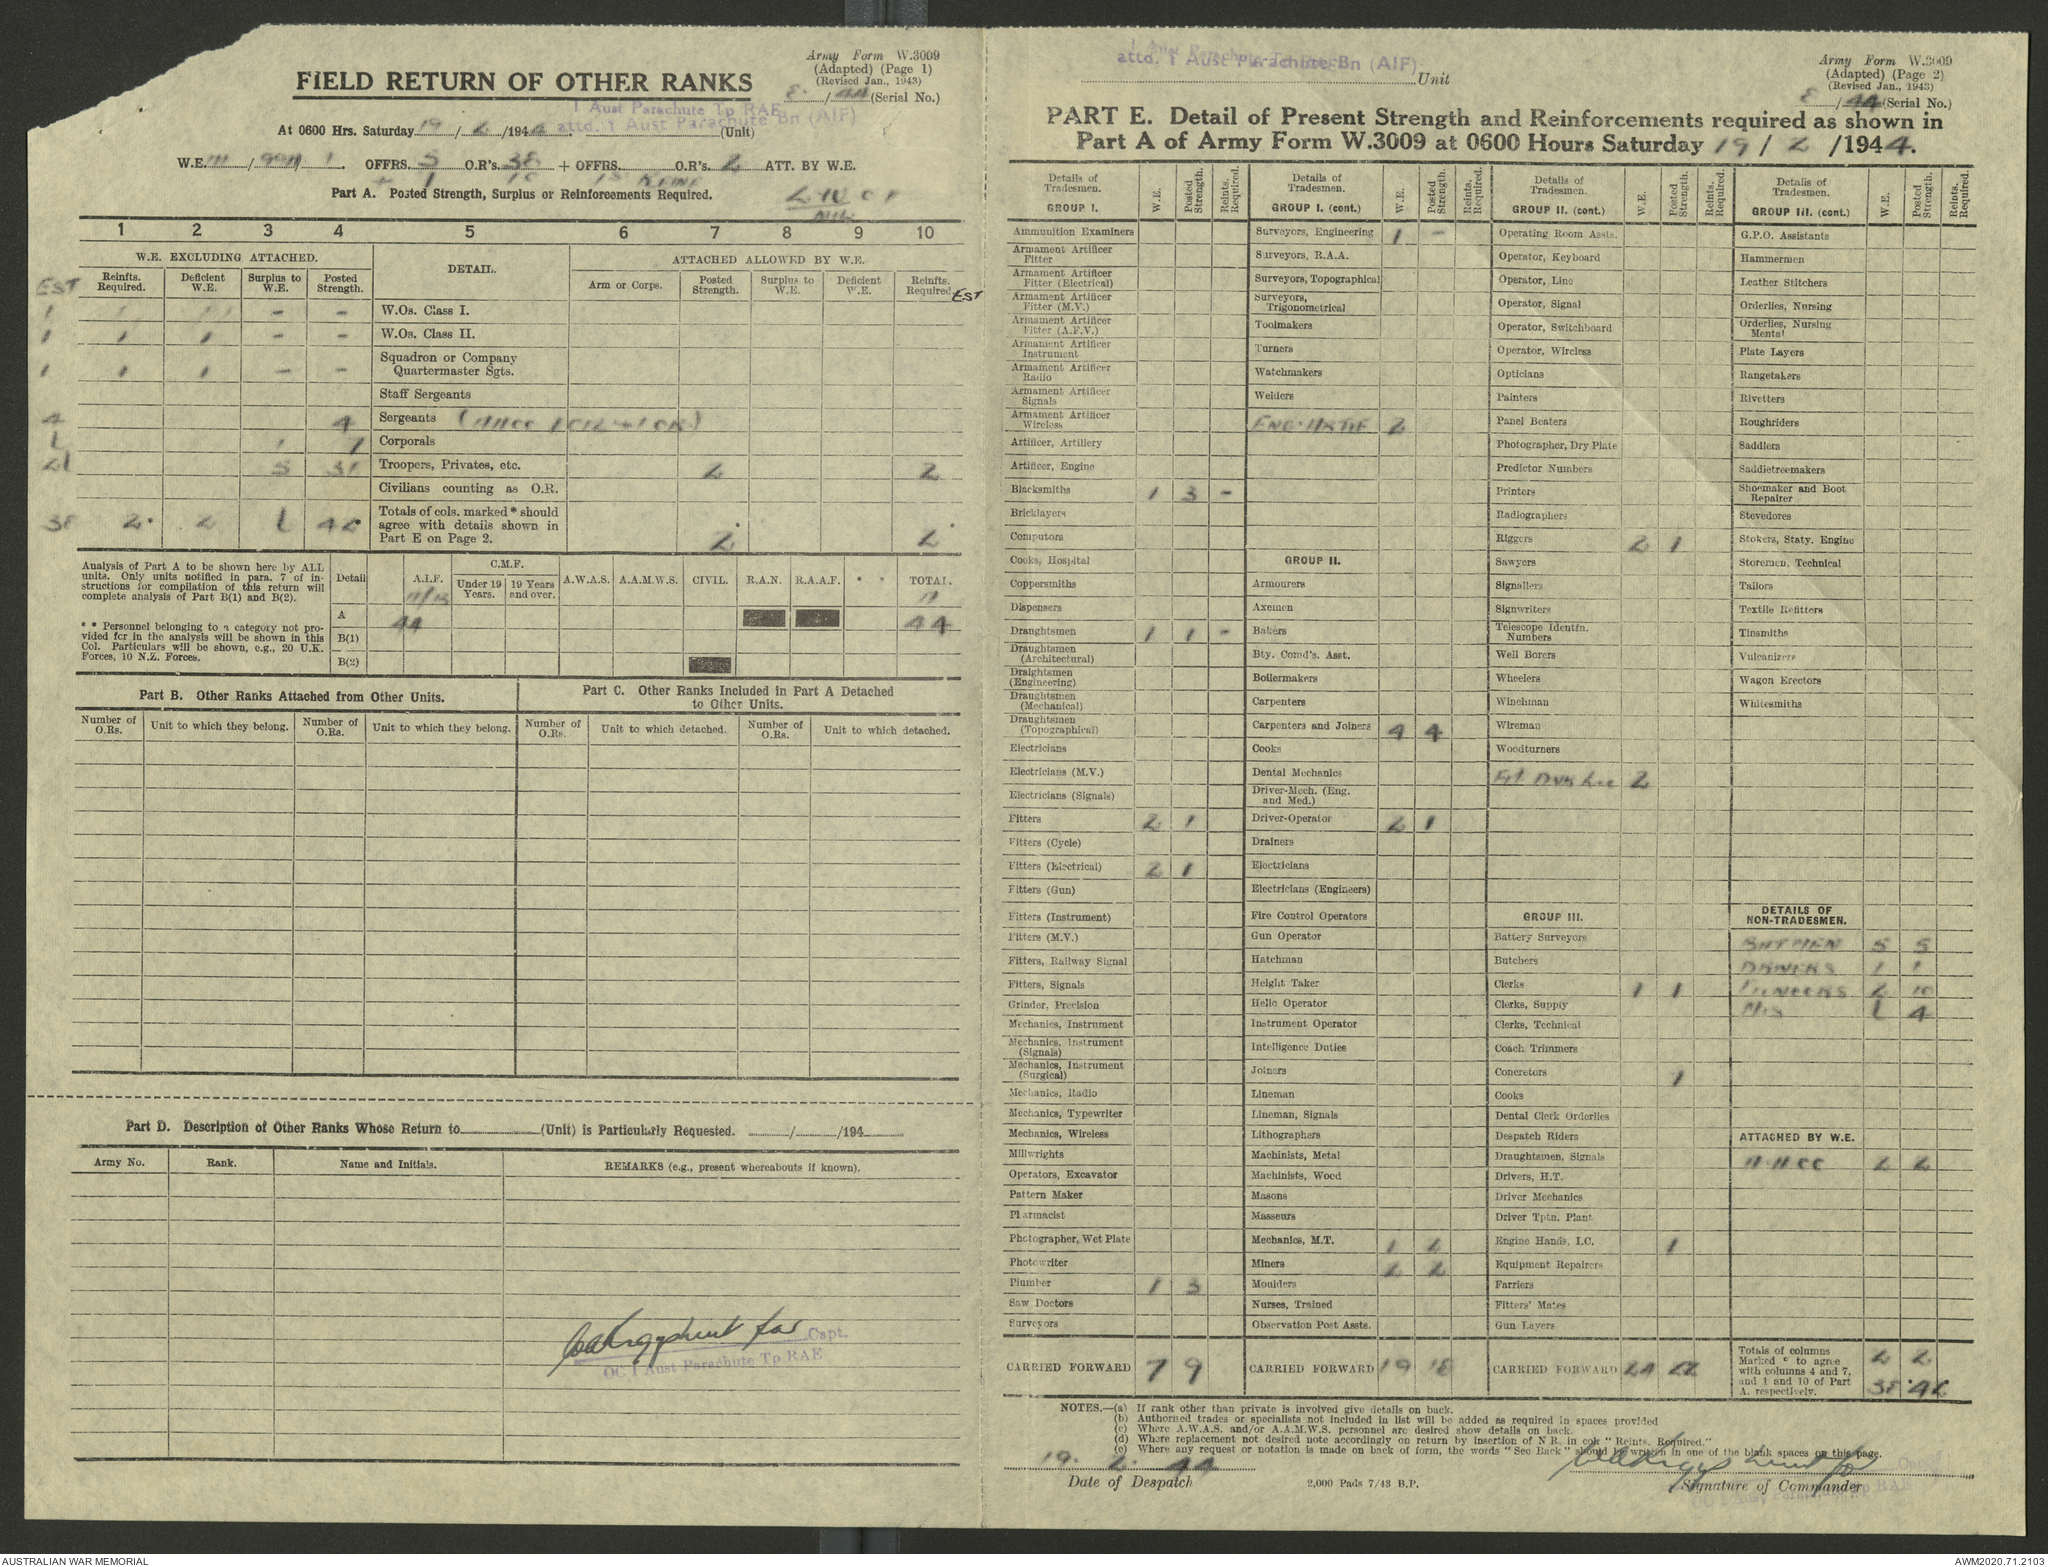 Army Form W.3009
(Adapted) (Page 1)
(Revised Jan., 1943)
8 / 44 (Serial No.)
FIELD RETURN OF OTHER RANKS
1 Aust Parachute Tp RAE
attd. 1 Aust Parachute Bn (AIF)
At 0600 Hrs. Saturday 19 / 2 /1944 (Unit)
W.E. III / / 1 OFFRS. 5 O.R's. 38 + OFFRS. O.R's. 2 ATT. BY W.E.
Part A. Posted Strength, Surplus or Reinforcements Required.
1 2 3 4 5 6 7 8 9 10
W.E. EXCLUDING ATTACHED. DETAIL. ATTACHED ALLOWED BY W.E.
EST Reinfts. Required. Deficient W.E. Surplus to W.E. Posted Strength. Arm or Corps. Posted Strength. Surplus to W.E. Deficient W.E. Reinfts. Required EST
1 1 1 - - W.Os. Class I.
1 1 1 - - W.Os. Class II.
1 1 1 - - Squadron or Company Quartermaster Sgts.
Staff Sergeants
4 4 Sergeants
1 7 Corporals
5 31 Troopers, Privates, etc. 2 2
Civilians counting as O.R.
38 2* 2 42 Totals of cols. marked * should agree with details shown in Part E on Page 2. 2 2
Analysis of Part A to be shown here by ALL
units. Only units notified in para. 7 of in-
structions for compilation of this return will
complete analysis of Part B(1) and B(2).
* * Personnel belonging to a category not pro-
vided for in the analysis will be shown in this
Col. Particulars will be shown, e.g., 20 U.K.
Forces, 10 N.Z. Forces.
Detail A.I.F. C.M.F. Under 19 Years. 19 Years and over. A.W.A.S. A.A.M.W.S. CIVIL. R.A.N. R.A.A.F. * * TOTAL.
A 44 44
B(1)
B(2)
Part B. Other Ranks Attached from Other Units.
Part C. Other Ranks Included in Part A Detached
to Other Units.
Number of O.Rs. Unit to which they belong. Number of O.Rs. Unit to which they belong. Number of O.Rs. Unit to which detached. Number of O.Rs. Unit to which detached.
Part D. Description of Other Ranks Whose Return to (Unit) is Particularly Requested. / /194
Army No. Rank. Name and Initials. REMARKS (e.g., present whereabouts if known).
for Capt.
OC 1 Aust Parachute Tp RAE
1 Aust Parachute Tp RAE
attd. 1 Aust Parachute Bn (AIF) Unit
Army Form W.3009
(Adapted) (Page 2)
(Revised Jan., 1943)
8 / 44 (Serial No.)
PART E. Detail of Present Strength and Reinforcements required as shown in
Part A of Army Form W.3009 at 0600 Hours Saturday 19 / 2 / 1944.
Details of Tradesmen. GROUP I. W.E. Posted Strength. Reints. Required.
Ammunition Examiners
Armament Artificer Fitter
Armament Artificer Fitter (Electrical)
Armament Artificer Fitter (M.V.)
Armament Artificer Fitter (A.F.V.)
Armament Artificer Instrument
Armament Artificer Radio
Armament Artificer Signals
Armament Artificer Wireless
Artificer, Artillery
Artificer, Engine
Blacksmiths 1 3 -
Bricklayers
Computors
Cooks, Hospital
Coppersmiths
Dispensers
Draughtsmen 1 1 -
Draughtsmen (Architectural)
Draughtsmen (Engineering)
Draughtsmen (Mechanical)
Draughtsmen (Topographical)
Electricians
Electricians (M.V.)
Electricians (Signals)
Fitters 2 1
Fitters (Cycle)
Fitters (Electrical) 2 1
Fitters (Gun)
Fitters (Instrument)
Fitters (M.V.)
Fitters, Railway Signal
Fitters, Signals
Grinder, Precision
Mechanics, Instrument
Mechanics, Instrument (Signals)
Mechanics, Instrument (Surgical)
Mechanics, Radio
Mechanics, Typewriter
Mechanics, Wireless
Millwrights
Operators, Excavator
Pattern Maker
Pharmacist
Photographer, Wet Plate
Photowriter
Plumber 1 3
Saw Doctors
Surveyors
CARRIED FORWARD 7 9
Details of Tradesmen. GROUP I. (cont.) W.E. Posted Strength. Reints. Required.
Surveyors, Engineering 1 -
Surveyors, R.A.A.
Surveyors, Topographical
Surveyors, Trigonometrical
Toolmakers
Turners
Watchmakers
Welders
2
GROUP II.
Armourers
Axemen
Bakers
Bty. Comd's. Asst.
Boilermakers
Carpenters
Carpenters and Joiners 4 4
Cooks
Dental Mechanics
Driver-Mech. (Eng. and Med.)
Driver-Operator 2 1
Drainers
Electricians
Electricians (Engineers)
Fire Control Operators
Gun Operator
Hatchman
Height Taker
Helio Operator
Instrument Operator
Intelligence Duties
Joiners
Lineman
Lineman, Signals
Lithographers
Machinists, Metal
Machinists, Wood
Masons
Masseurs
Mechanics, M.T. 1 2
Miners 2 2
Moulders
Nurses, Trained
Observation Post Assts.
CARRIED FORWARD 19 18
Details of Tradesmen. GROUP II. (cont.) W.E. Posted Strength. Reints. Required.
Operating Room Assts.
Operator, Keyboard
Operator, Line
Operator, Signal
Operator, Switchboard
Operator, Wireless
Opticians
Painters
Panel Beaters
Photographer, Dry Plate
Predictor Numbers
Printers
Radiographers
Riggers 2 1
Sawyers
Signallers
Signwriters
Telescope Identfn. Numbers
Well Borers
Wheelers
Winchman
Wireman
Woodturners
2
GROUP III.
Battery Surveyors
Butchers
Clerks 1 1
Clerks, Supply
Clerks, Technical
Coach Trimmers
Concretors 1
Cooks
Dental Clerk Orderlies
Despatch Riders
Draughtsmen, Signals
Drivers, H.T.
Driver Mechanics
Driver Tptn. Plant
Engine Hands, I.C. 1
Equipment Repairers
Farriers
Fitters' Mates
Gun Layers
CARRIED FORWARD 24 22
Details of Tradesmen. GROUP III. (cont.) W.E. Posted Strength. Reints. Required.
G.P.O. Assistants
Hammermen
Leather Stitchers
Orderlies, Nursing
Orderlies, Nursing Mental
Plate Layers
Rangetakers
Rivetters
Roughriders
Saddlers
Saddletreemakers
Shoemaker and Boot Repairer
Stevedores
Stokers, Staty. Engine
Storemen, Technical
Tailors
Textile Refitters
Tinsmiths
Vulcanizers
Wagon Erectors
Whitesmiths
DETAILS OF NON-TRADESMEN.
BATMEN 5 5
DRIVERS 1 1
PIONEERS 2 10
4
ATTACHED BY W.E.
AACC 2 2
Totals of columns Marked * to agree with columns 4 and 7, and 1 and 10 of Part A. respectively. 2 2
38 42
NOTES.—(a) If rank other than private is involved give details on back.
(b) Authorised trades or specialists not included in list will be added as required in spaces provided
(c) Where A.W.A.S. and/or A.A.M.W.S. personnel are desired show details on back.
(d) Where replacement not desired note accordingly on return by insertion of N R. in col. "Reints. Required."
(e) Where any request or notation is made on back of form, the words "See Back" should be written in one of the blank spaces on this page.
19. 2. 44
Date of Despatch
2,000 Pads 7/43 B.P.
for Capt.
Signature of Commander
OC 1 Aust Parachute Tp RAE
AUSTRALIAN WAR MEMORIAL
AWM2020.71.2103